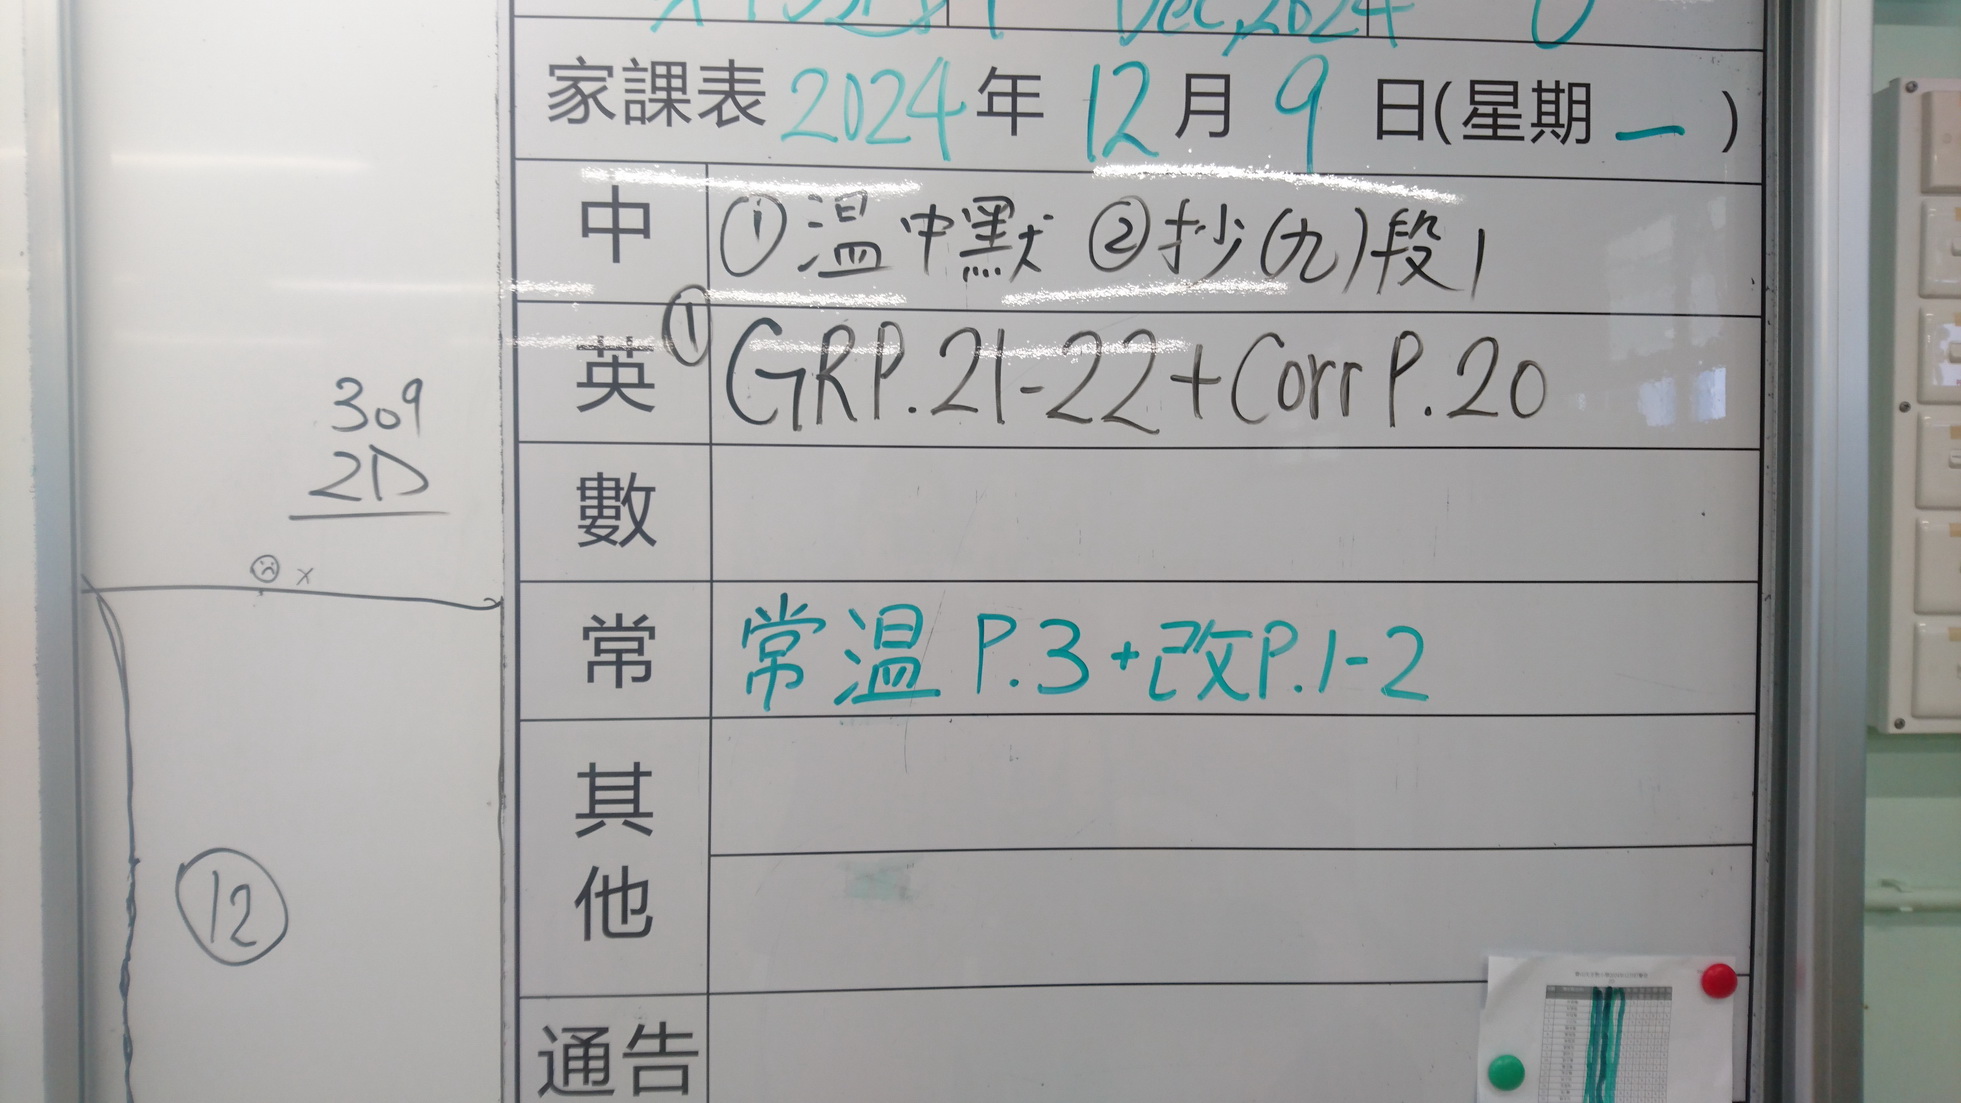 Dec, 2024
家課表 2024 年 12 月 9 日(星期 一 )
中 ①溫中默 ②抄(九)段1
英 ① GRP.21-22+Corr P.20
數
常 常溫 P.3+改P.1-2
其他
通告
309
2D
x
12